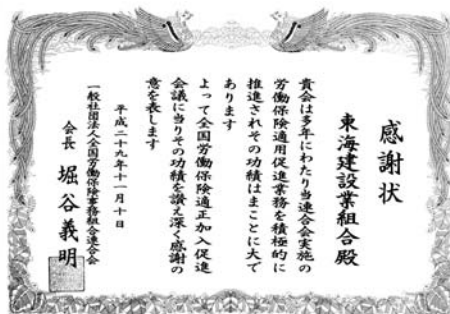 感謝状
東海建設業組合殿
貴会は多年にわたり当連合会実施の
労働保険適用促進業務を積極的に
推進されその功績はまことに大で
あります
よって全国労働保険適正加入促進
会議に当りその功績を讃え深く感謝の
意を表します
平成二十九年十一月十日
一般社団法人全国労働保険事務組合連合会
会長 堀谷義明